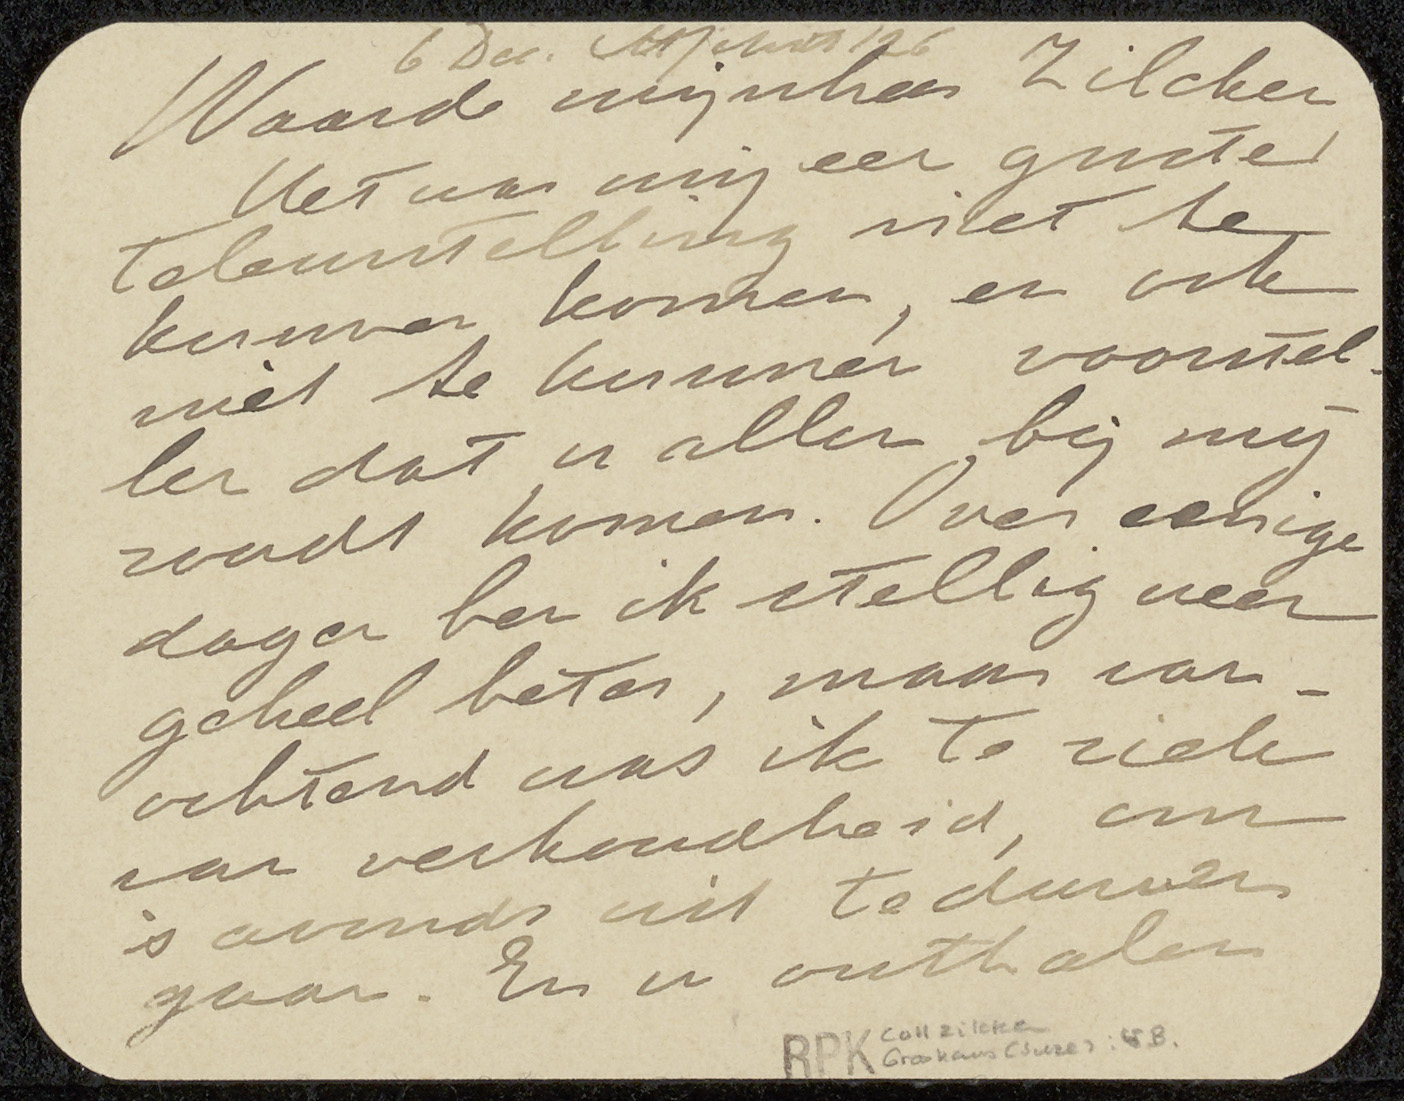 6 Dec.
Waarde mijnheer Zilcken
Het was mij een groote
teleurstelling niet te
kunnen komen, en ook
niet te kunnen voorstel-
len dat u allen bij mij
zoudt komen. Over eenige
dagen ben ik stellig weer
geheel beter, maar van-
ochtend was ik te ziek
van verkoudheid, om
's avonds uit te durven
gaan. En u onthalen
RPK Coll Zilcken
Groshans (Suze): W.B.